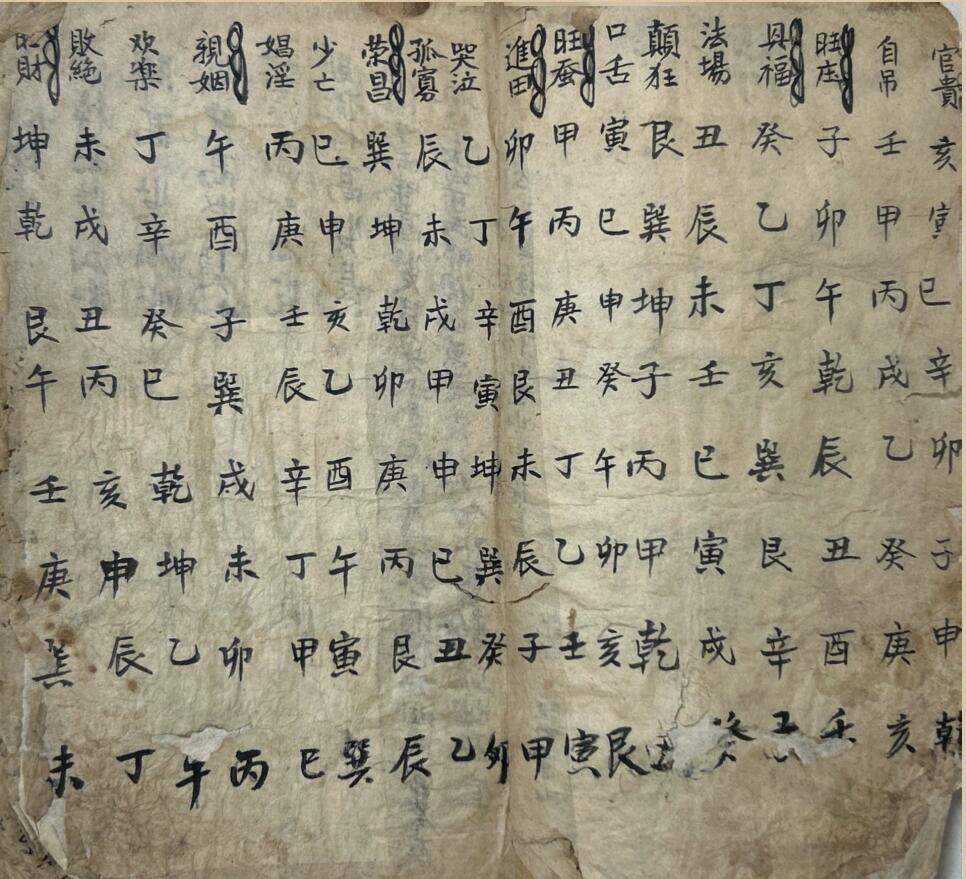 官貴亥寅巳辛卯子申乾
自吊壬甲丙戌乙癸庚亥
旺庄子卯午乾辰丑酉壬
具福癸乙丁亥巽艮辛
法場丑辰未壬巳寅戌癸
顛狂艮巽坤子丙甲乾丑
口舌寅巳申癸午卯亥艮
旺蚕甲丙庚丑丁乙壬寅
進田卯午酉艮未辰子甲
哭泣乙丁辛寅坤巽癸卯
孤寡辰未戌甲申巳丑乙
荣昌巽坤乾卯庚丙艮辰
少亡巳申亥乙酉午寅巽
娼淫丙庚壬辰辛丁甲巳
親姻午酉子巽戌未卯丙
欢楽丁辛癸巳乾坤乙午
敗絶未戌丑丙亥申辰丁
旺財坤乾艮午壬庚巽未